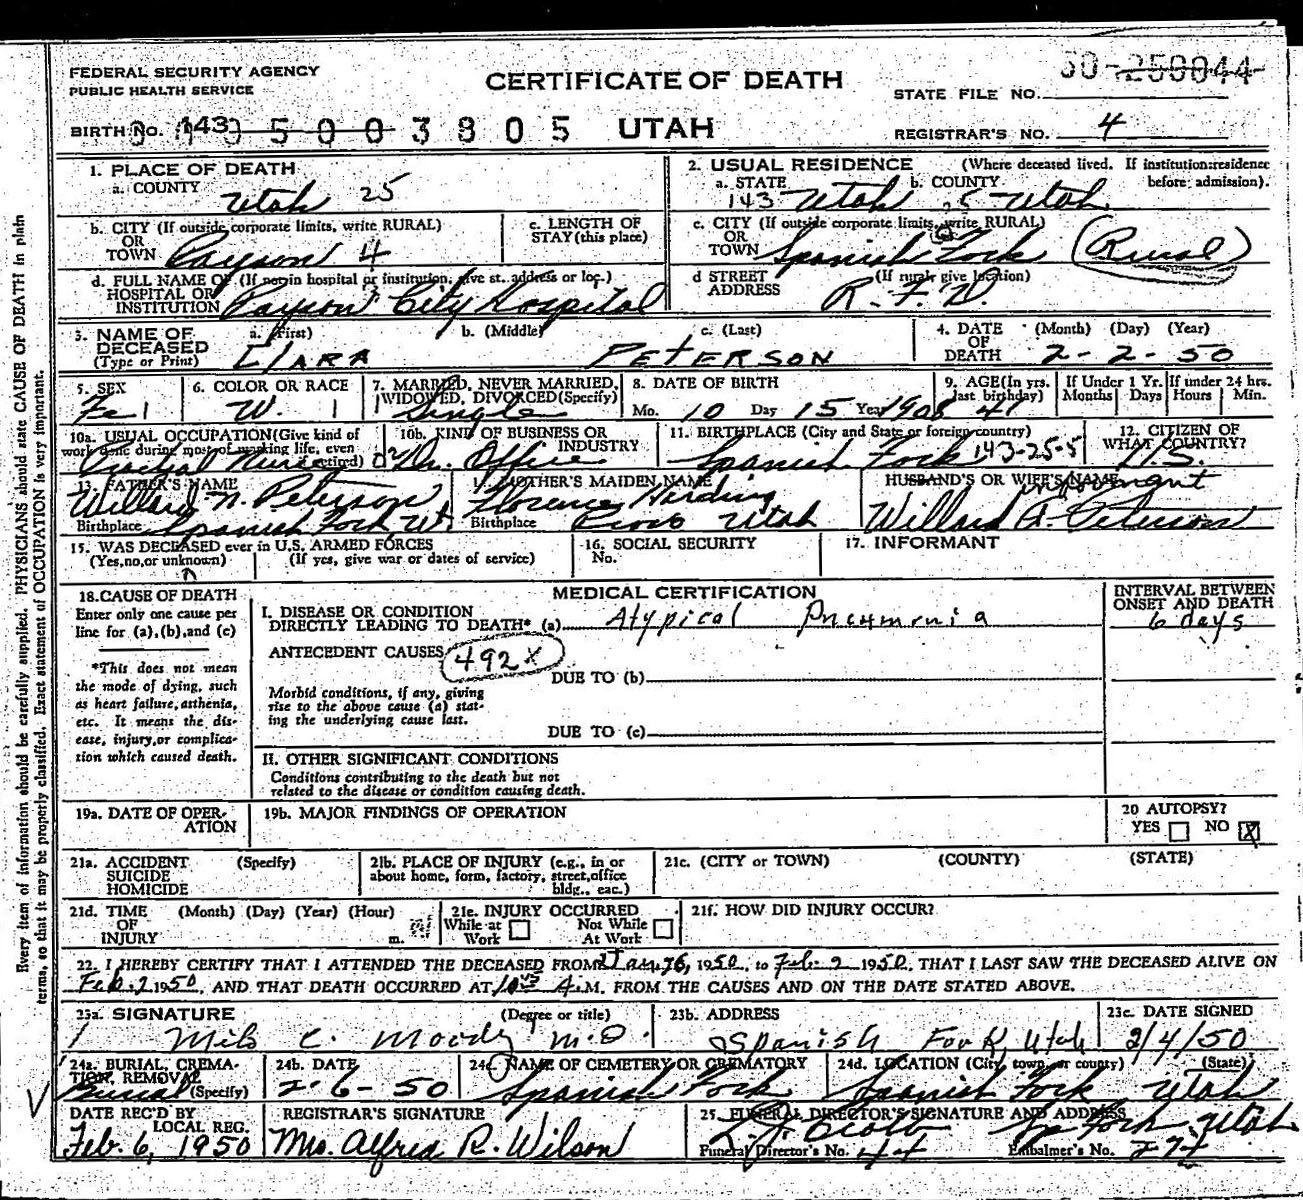 FEDERAL SECURITY AGENCY
PUBLIC HEALTH SERVICE
CERTIFICATE OF DEATH
50-250044
STATE FILE NO.
BIRTH No. 143 5003805
UTAH
REGISTRAR'S NO. 4
1. PLACE OF DEATH
a. COUNTY
Utah 25
2. USUAL RESIDENCE (Where deceased lived. If institution: residence before admission).
a. STATE b. COUNTY
143 Utah 25 Utah
b. CITY (If outside corporate limits, write RURAL)
OR
TOWN Payson 4
c. LENGTH OF
STAY (this place)
c. CITY (If outside corporate limits, write RURAL)
OR
TOWN Spanish Fork (Rural)
d. FULL NAME OF (If not in hospital or institution, give st. address or loc.)
HOSPITAL OR
INSTITUTION Payson City Hospital
d STREET (If rural give location)
ADDRESS R. F. D.
3. NAME OF DECEASED
(Type or Print)
a. (First) b. (Middle) c. (Last)
Clara Peterson
4. DATE OF DEATH (Month) (Day) (Year)
2-2-50
5. SEX
Fe 1
6. COLOR OR RACE
W. 1
7. MARRIED, NEVER MARRIED,
WIDOWED, DIVORCED (Specify)
1 Single
8. DATE OF BIRTH
Mo. 10 Day 15 Year 1908
9. AGE (In yrs. last birthday) 41
If Under 1 Yr. Months Days
If under 24 hrs. Hours Min.
10a. USUAL OCCUPATION (Give kind of work done during most of working life, even if retired)
Practical Nurse
10b. KIND OF BUSINESS OR INDUSTRY
Dr. Office
11. BIRTHPLACE (City and State or foreign country)
Spanish Fork 143-25-5
12. CITIZEN OF WHAT COUNTRY?
U.S.
13. FATHER'S NAME
Willard N. Peterson
Birthplace Spanish Fork Ut.
14. MOTHER'S MAIDEN NAME
Florence Harding
Birthplace Provo Utah
HUSBAND'S OR WIFE'S NAME
informant
Willard A. Peterson
15. WAS DECEASED ever in U.S. ARMED FORCES
(Yes, no, or unknown) (If yes, give war or dates of service)
n
16. SOCIAL SECURITY
No.
17. INFORMANT
18. CAUSE OF DEATH
Enter only one cause per line for (a), (b), and (c)
*This does not mean the mode of dying, such as heart failure, asthenia, etc. It means the disease, injury, or complication which caused death.
MEDICAL CERTIFICATION
I. DISEASE OR CONDITION
DIRECTLY LEADING TO DEATH* (a) Atypical Pneumonia
INTERVAL BETWEEN ONSET AND DEATH
6 days
ANTECEDENT CAUSES
492x
DUE TO (b)
Morbid conditions, if any, giving rise to the above cause (a) stating the underlying cause last.
DUE TO (c)
II. OTHER SIGNIFICANT CONDITIONS
Conditions contributing to the death but not
related to the disease or condition causing death.
19a. DATE OF OPERATION
19b. MAJOR FINDINGS OF OPERATION
20 AUTOPSY?
YES NO X
21a. ACCIDENT (Specify)
SUICIDE
HOMICIDE
21b. PLACE OF INJURY (e.g., in or about home, form, factory, street, office bldg., eac.)
21c. (CITY or TOWN) (COUNTY) (STATE)
21d. TIME (Month) (Day) (Year) (Hour)
OF
INJURY m.
21e. INJURY OCCURRED
While at Work Not While At Work
21f. HOW DID INJURY OCCUR?
22. I HEREBY CERTIFY THAT I ATTENDED THE DECEASED FROM Jan. 26, 1950, to Feb. 2 1950, THAT I LAST SAW THE DECEASED ALIVE ON
Feb. 2 1950, AND THAT DEATH OCCURRED AT 10 A.M. FROM THE CAUSES AND ON THE DATE STATED ABOVE.
23a. SIGNATURE (Degree or title)
Milo C. Moody M.D.
23b. ADDRESS
Spanish Fork, Utah
23c. DATE SIGNED
2/4/50
24a. BURIAL, CREMATION, REMOVAL (Specify)
Burial
24b. DATE
2-6-50
24c. NAME OF CEMETERY OR CREMATORY
Spanish Fork
24d. LOCATION (City, town, or county) (State)
Spanish Fork Utah
DATE REC'D BY LOCAL REG.
Feb. 6, 1950
REGISTRAR'S SIGNATURE
Mrs. Alfred R. Wilson
25. FUNERAL DIRECTOR'S SIGNATURE AND ADDRESS
Sp. Fork, Utah
Funeral Director's No. 44 Embalmer's No. 274
Every item of information should be carefully supplied. PHYSICIANS should state CAUSE OF DEATH in plain
terms, so that it may be properly classified. Exact statement of OCCUPATION is very important.